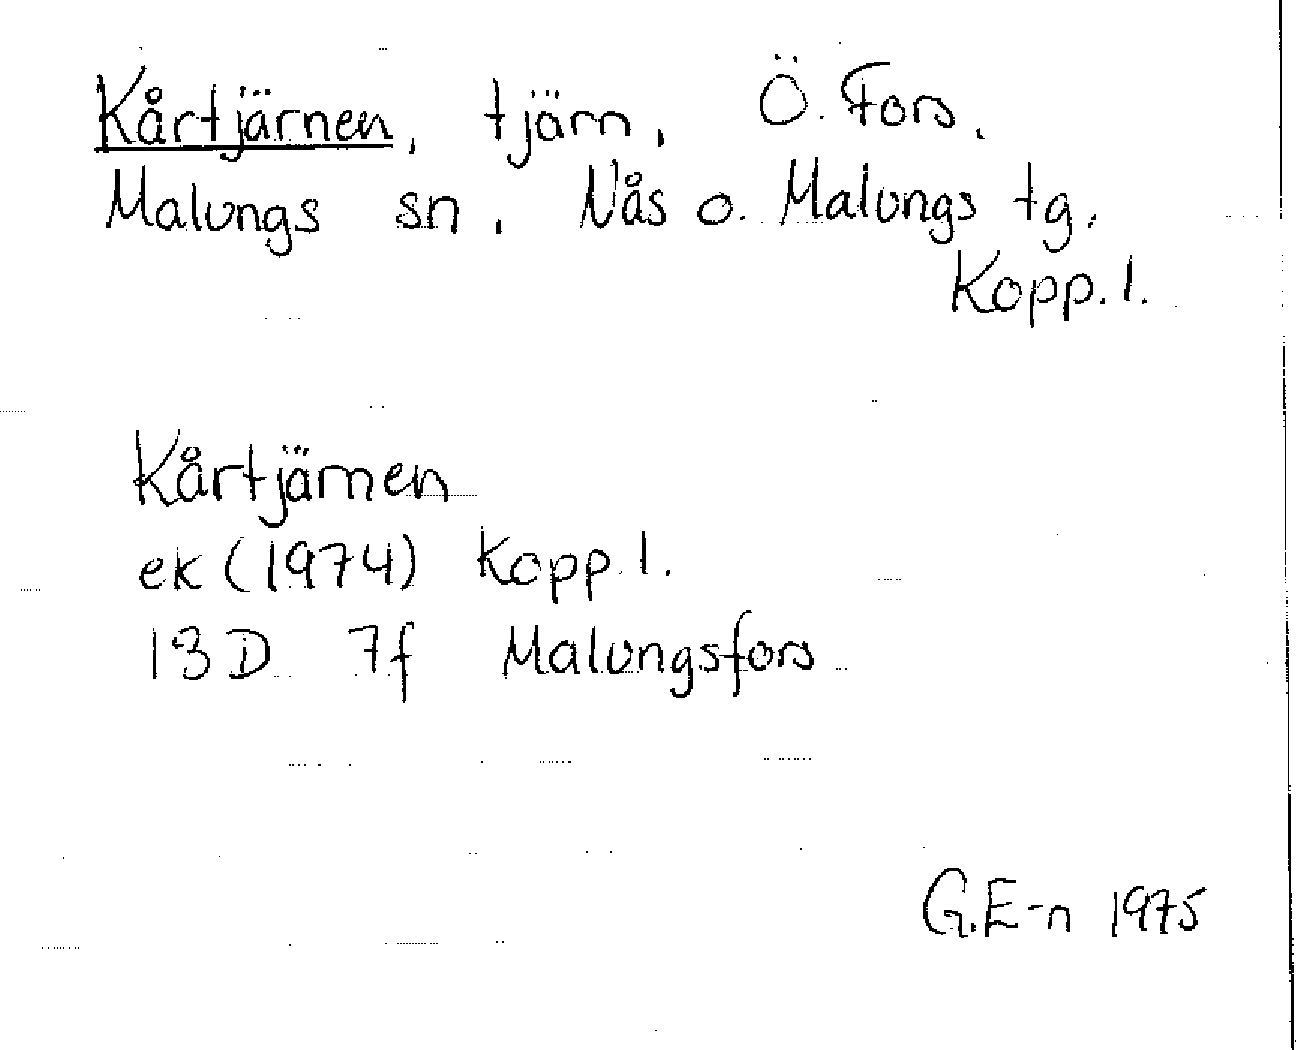 Kårtjärnen, tjärn, Ö. Fors.
Malungs sn, Nås o. Malungs tg.
Kopp. l.
Kårtjärnen
ek (1974) Kopp. l.
13 D 7f Malungsfors
G.E-n 1975